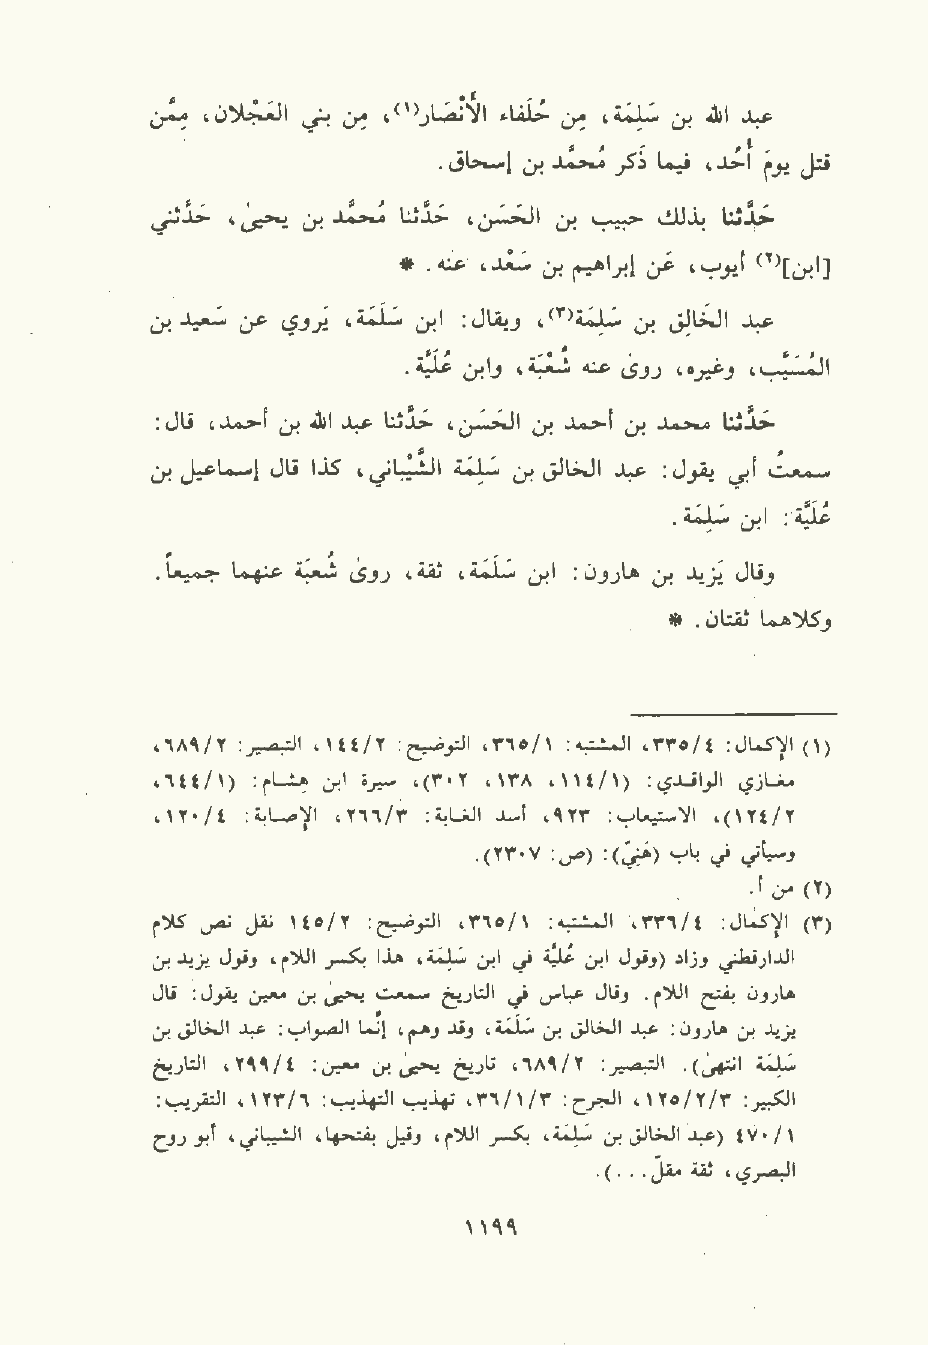 عبد الله بن سَلِمَة، مِن حُلَفاء الأنْصَار(١)، مِن بني العَجْلان، مِمَّن
قتل يومَ أُحُد، فيما ذكَر مُحمَّد بن إسحاق.
حَدَّثنا بذلك حبيب بن الحَسَن، حَدَّثنا مُحمَّد بن يحيىٰ، حَدَّثني
[ابن](٢) أيوب، عَن إبراهيم بن سَعْد، عنه. *
عبد الخَالِق بن سَلِمَة(٣)، ويقال: ابن سَلَمَة، يَروي عن سَعيد بن
المُسَيَّب، وغيره، روىٰ عنه شُعْبَة، وابن عُلَيَّة.
حَدَّثنا محمد بن أحمد بن الحَسَن، حَدَّثنا عبد الله بن أحمد، قال:
سمعتُ أبي يقول: عبد الخالق بن سَلِمَة الشَّيْباني، كذا قال إسماعيل بن
عُلَيَّة: ابن سَلِمَة.
وقال يَزيد بن هارون: ابن سَلَمَة، ثقة، روىٰ شُعبَة عنهما جميعاً.
وكلاهما ثقتان. *
(١) الإكمال: ٣٣٥/٤، المشتبه: ٣٦٥/١، التوضيح: ١٤٤/٢، التبصير: ٦٨٩/٢،
مغازي الواقدي: (١١٤/١، ١٣٨، ٣٠٢)، سيرة ابن هشام: (٦٤٤/١،
١٢٤/٢)، الاستيعاب: ٩٢٣، أسد الغابة: ٢٦٦/٣، الإصابة: ١٢٠/٤،
وسيأتي في باب (هَنِيّ): (ص: ٢٣٠٧).
(٢) من أ.
(٣) الإكمال: ٣٣٦/٤، المشتبه: ٣٦٥/١، التوضيح: ١٤٥/٢ نقل نص كلام
الدارقطني وزاد (وقول ابن عُلَيَّة في ابن سَلِمَة، هذا بكسر اللام، وقول يزيد بن
هارون بفتح اللام. وقال عباس في التاريخ سمعت يحيىٰ بن معين يقول: قال
يزيد بن هارون: عبد الخالق بن سَلَمَة، وقد وهم، إنَّما الصواب: عبد الخالق بن
سَلِمَة انتهىٰ). التبصير: ٦٨٩/٢، تاريخ يحيىٰ بن معين: ٢٩٩/٤، التاريخ
الكبير: ١٢٥/٢/٣، الجرح: ٣٦/١/٣، تهذيب التهذيب: ١٢٣/٦، التقريب:
٤٧٠/١ (عبد الخالق بن سَلِمَة، بكسر اللام، وقيل بفتحها، الشيباني، أبو روح
البصري، ثقة مقلّ...).
١١٩٩